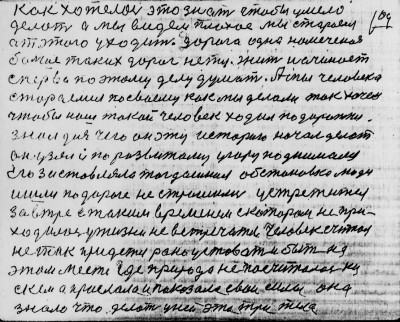 как хотелось это знать чтобы умело
делать а мы видем плохое мы стараемся
от этого уходить. дорога одна намеченая
больше таких дорог нету. жить и начинать
сперва по этому делу думать. А ты человека
стараемся по своему как мы делали так хочем
чтобы наш такой человек ходил по дорожки.
знал для чего он эту историю начал делать
он узял и по развитому угору поднимался
его заставляла тогдашняя обстановка люди
ишли по дороге не страшились устретится
завтре с таким временем с котором не при-
ходилось у жизни не встречать. Человек считал
не так придети рано уставать и быть на
этом месте Где природа не посчиталась ни
с кем а прислала и показала свои силы она
знала что делать у ней эта три тела
104